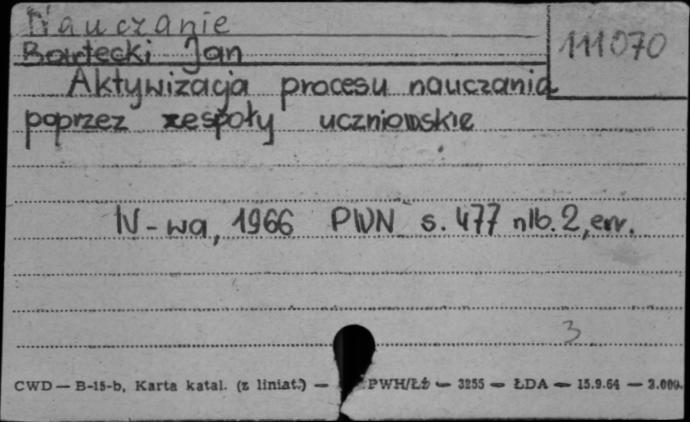 Nauczanie
111070
Bartecki Jan
Aktywizacja procesu nauczania
poprzez zespoły uczniowskie
W-wa, 1966 PWN s. 477 nlb. 2, err.
3
CWD — B-15-b, Karta katal. (z liniat.) — PWH/Łż — 3255 — ŁDA — 15.9.64 — 3.000.